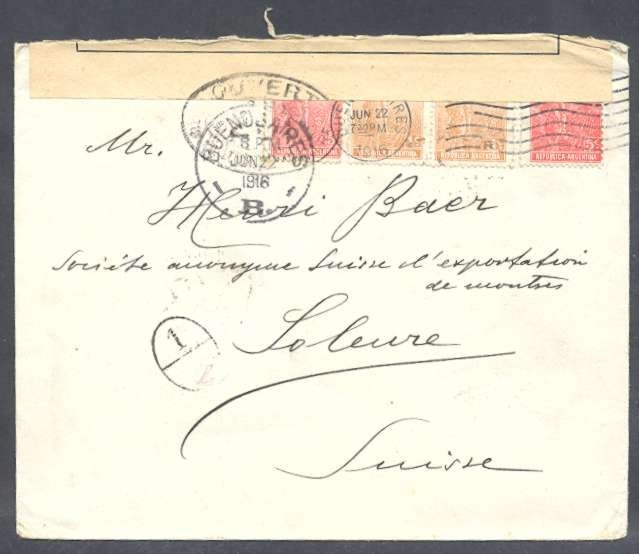 OUVERT
BUENOS AIRES
JUN 22
1916
B.
JUN 22
7 PM
1916
REPUBLICA ARGENTINA
R
REPUBLICA ARGENTINA
5
Mr.
Henri Baer
Société anonyme Suisse d'exportation
de montres
Soleure
Suisse
1